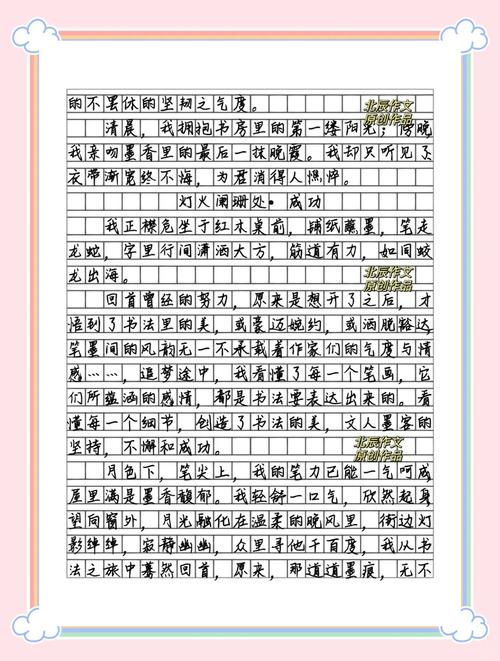 的不罢休的坚韧之气度。
清晨，我拥抱书房里的第一缕阳光；傍晚
我亲吻墨香里的最后一抹晚霞。我却只听见了
衣带渐宽终不海，为君消得人憔悴。
灯火阑珊处·成功
我正襟危坐于红木桌前，铺纸蘸墨，笔走
龙蛇，字里行间潇洒大方，筋道有力，如同蛟
龙出海。
回首曾经的努力，原来是想开了之后，才
悟到了书法里的美，或豪迈婉约，或洒脱豁达
笔墨间的风韵无一不承载着作家们的气度与情
感……，追梦途中，我看懂了每一个笔画，它
们所蕴涵的感情，都是书法要表达出来的。看
懂每一个细节，创造了书法的美，文人墨客的
坚持，不懈和成功。
月色下，笔尖上，我的笔力已能一气呵成
屋里满是墨香馥郁。我轻舒一口气，欣然起身
望向窗外，月光融化在温柔的晚风里，街边灯
影绰绰，寂静幽幽，众里寻他千百度，我从书
法之旅中蓦然回首，原来，那道道墨痕，无不
北辰作文
原创作品
北辰作文
原创作品
北辰作文
原创作品